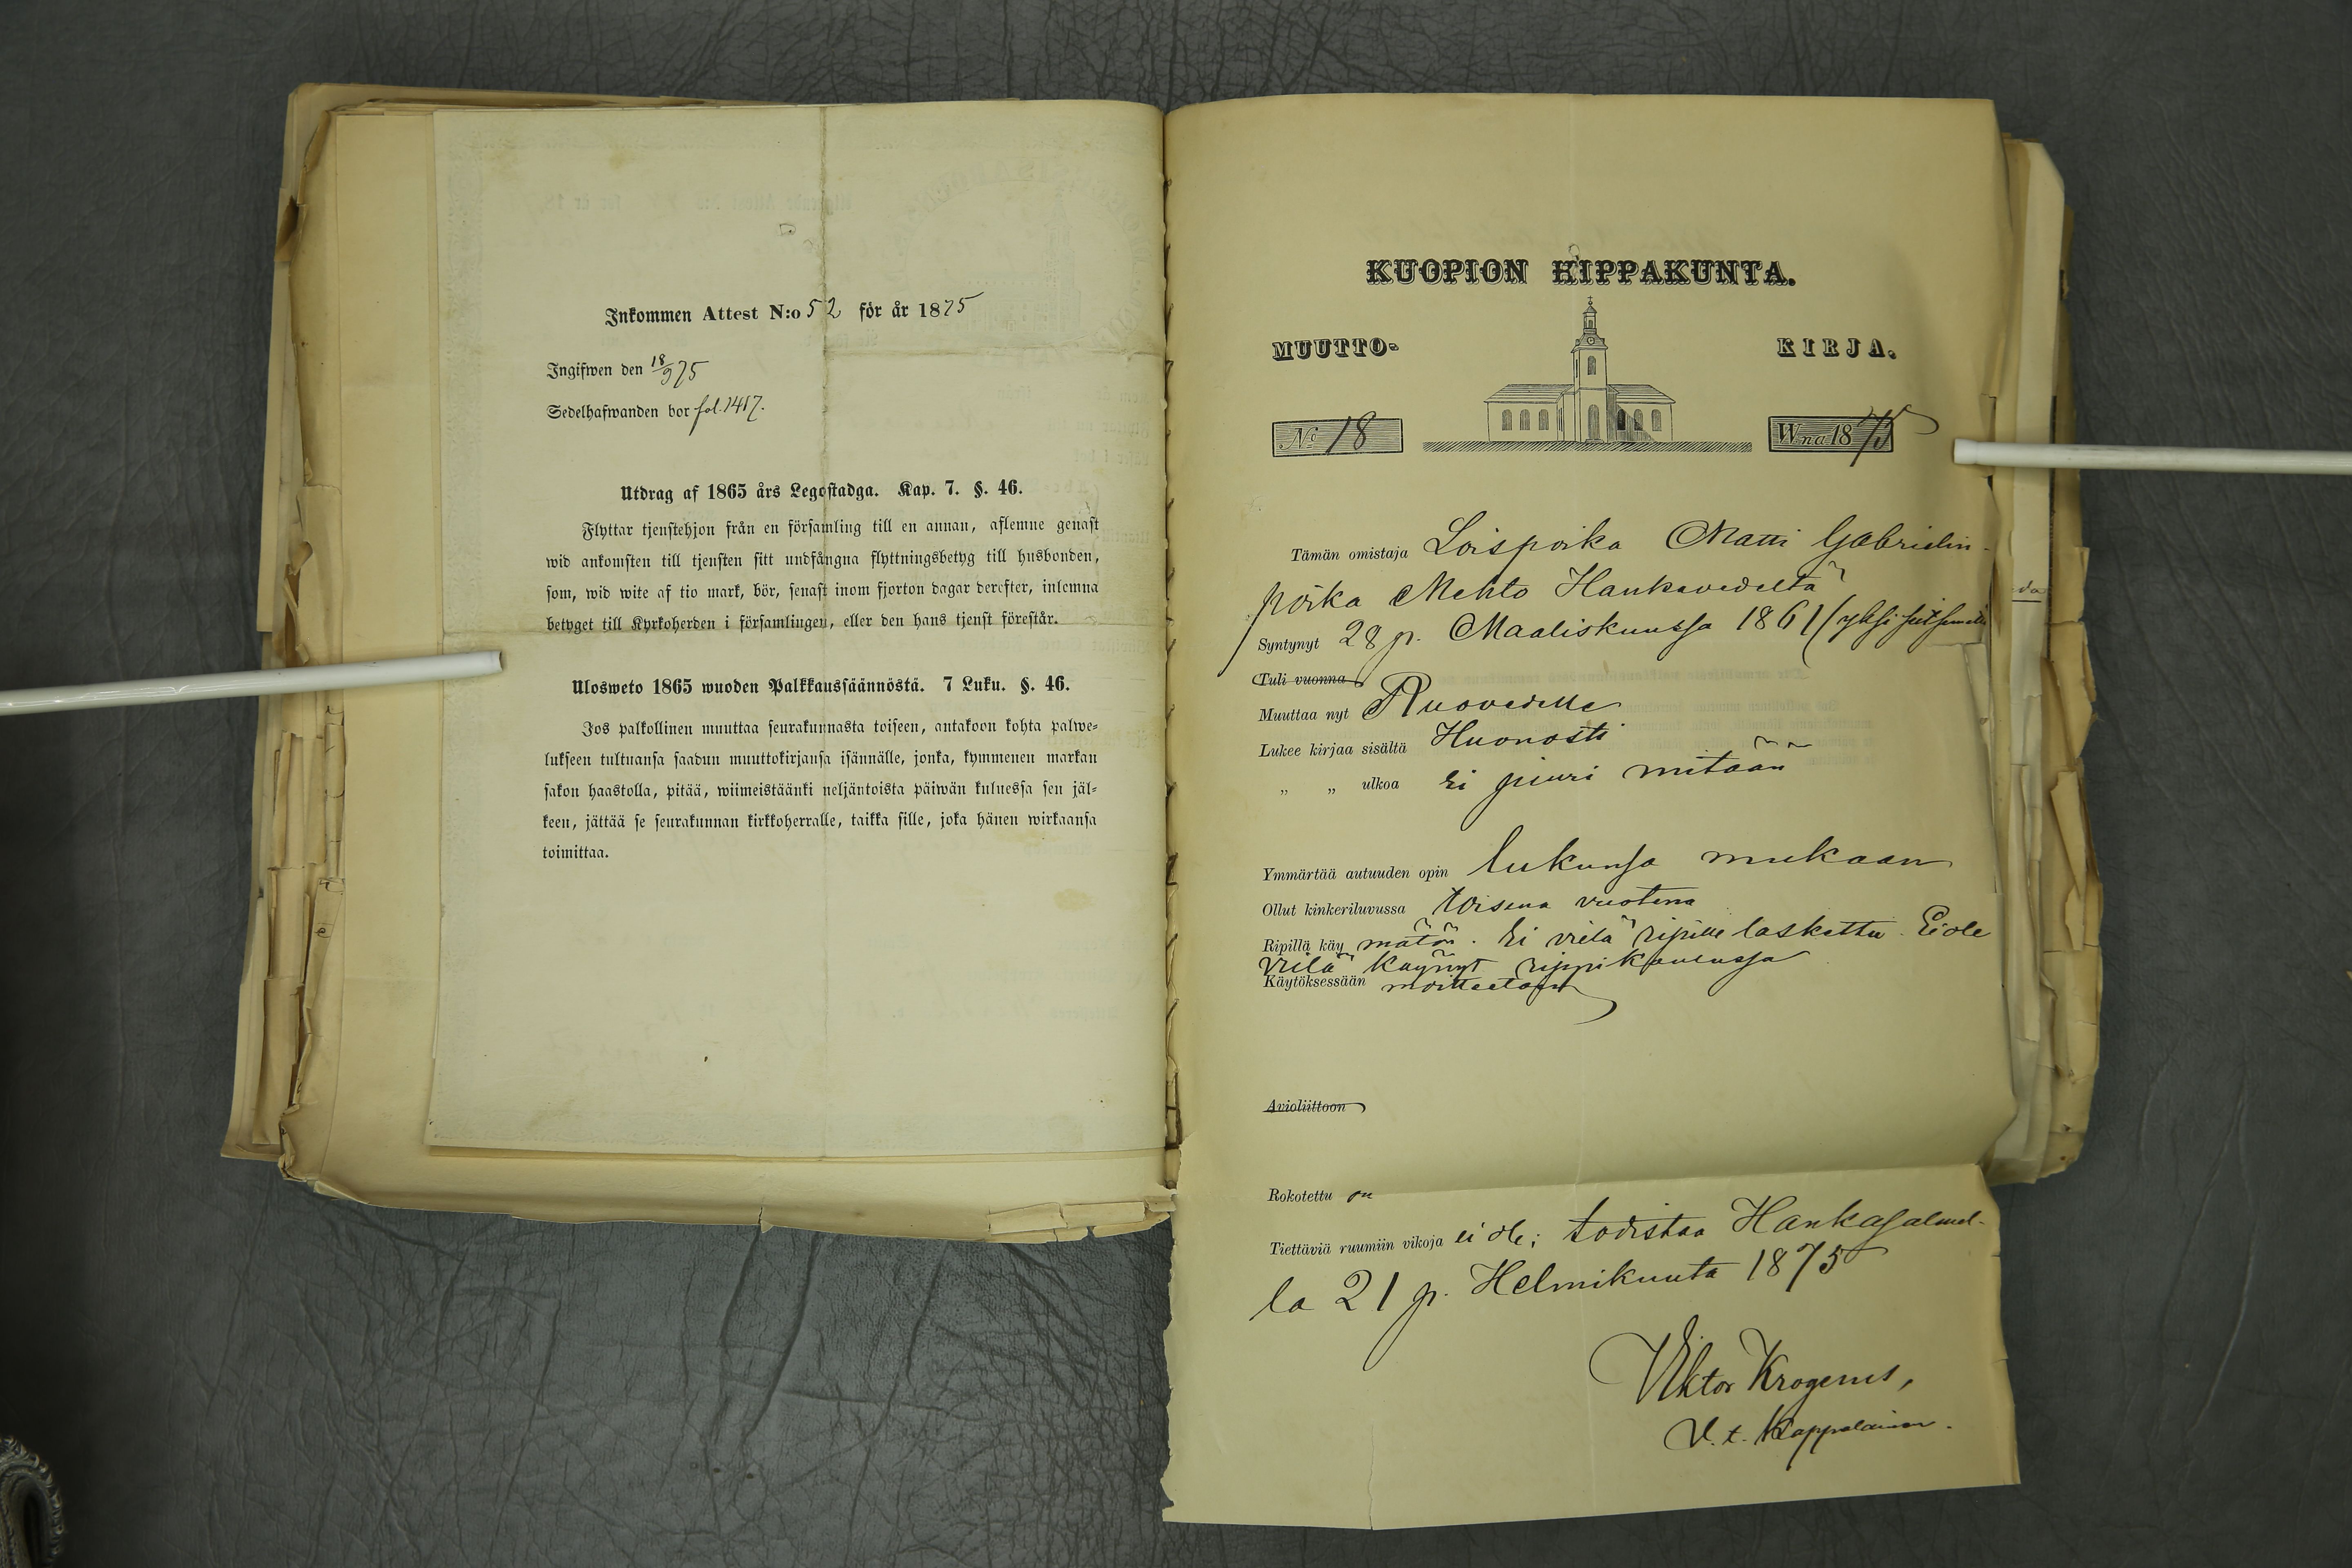 Inkommen Attest N:o 52 för år 1875
Ingifwen den 18/9 75
Sedelhafwanden bor fol. 1417.
Utdrag af 1865 års Legostadga. Kap. 7. §. 46.
Flyttar tjenstehjon från en församling till en annan, aflemne genast
wid ankomsten till tjensten sitt undfångna flyttningsbetyg till husbonden,
som, wid wite af tio mark, bör, senast inom fjorton dagar derefter, inlemna
betyget till Kyrkoherden i församlingen, eller den hans tjenst förestår.
Ulosweto 1865 wuoden Palkkaussäännöstä. 7 Luku. §. 46.
Jos palkollinen muuttaa seurakunnasta toiseen, antakoon kohta palwe-
lukseen tultuansa saadun muuttokirjansa isännälle, jonka, kymmenen markan
sakon haastolla, pitää, wiimeistäänki neljäntoista päiwän kuluessa sen jäl-
keen, jättää se seurakunnan kirkkoherralle, taikka sille, joka hänen wirkaansa
toimittaa.
KUOPION HIPPAKUNTA.
MUUTTO- KIRJA.
No 18 Wna 1875
Tämän omistaja Loispoika Matti Gabrielin-
poika Mehto Hankavedeltä
Syntynyt 28 p. Maaliskuussa 1861 (yksi
Tuli vuonna
Muuttaa nyt Ruovedelle
Lukee kirjaa sisältä Huonosti
„ „ ulkoa Ei juuri mitään
Ymmärtää autuuden opin lukunsa mukaan
Ollut kinkeriluvussa toisena vuotena
Ripillä käy mätön. Ei vielä ripille laskettu. Ei ole
vielä käynyt rippikoulussa
Käytöksessään moitteetoin
Avioliittoon
Rokotettu on
Tiettäviä ruumiin vikoja ei ole; todistaa Hankasalmel-
la 21 p. Helmikuuta 1875
Viktor Krogerus,
V. t. Kappalainen.